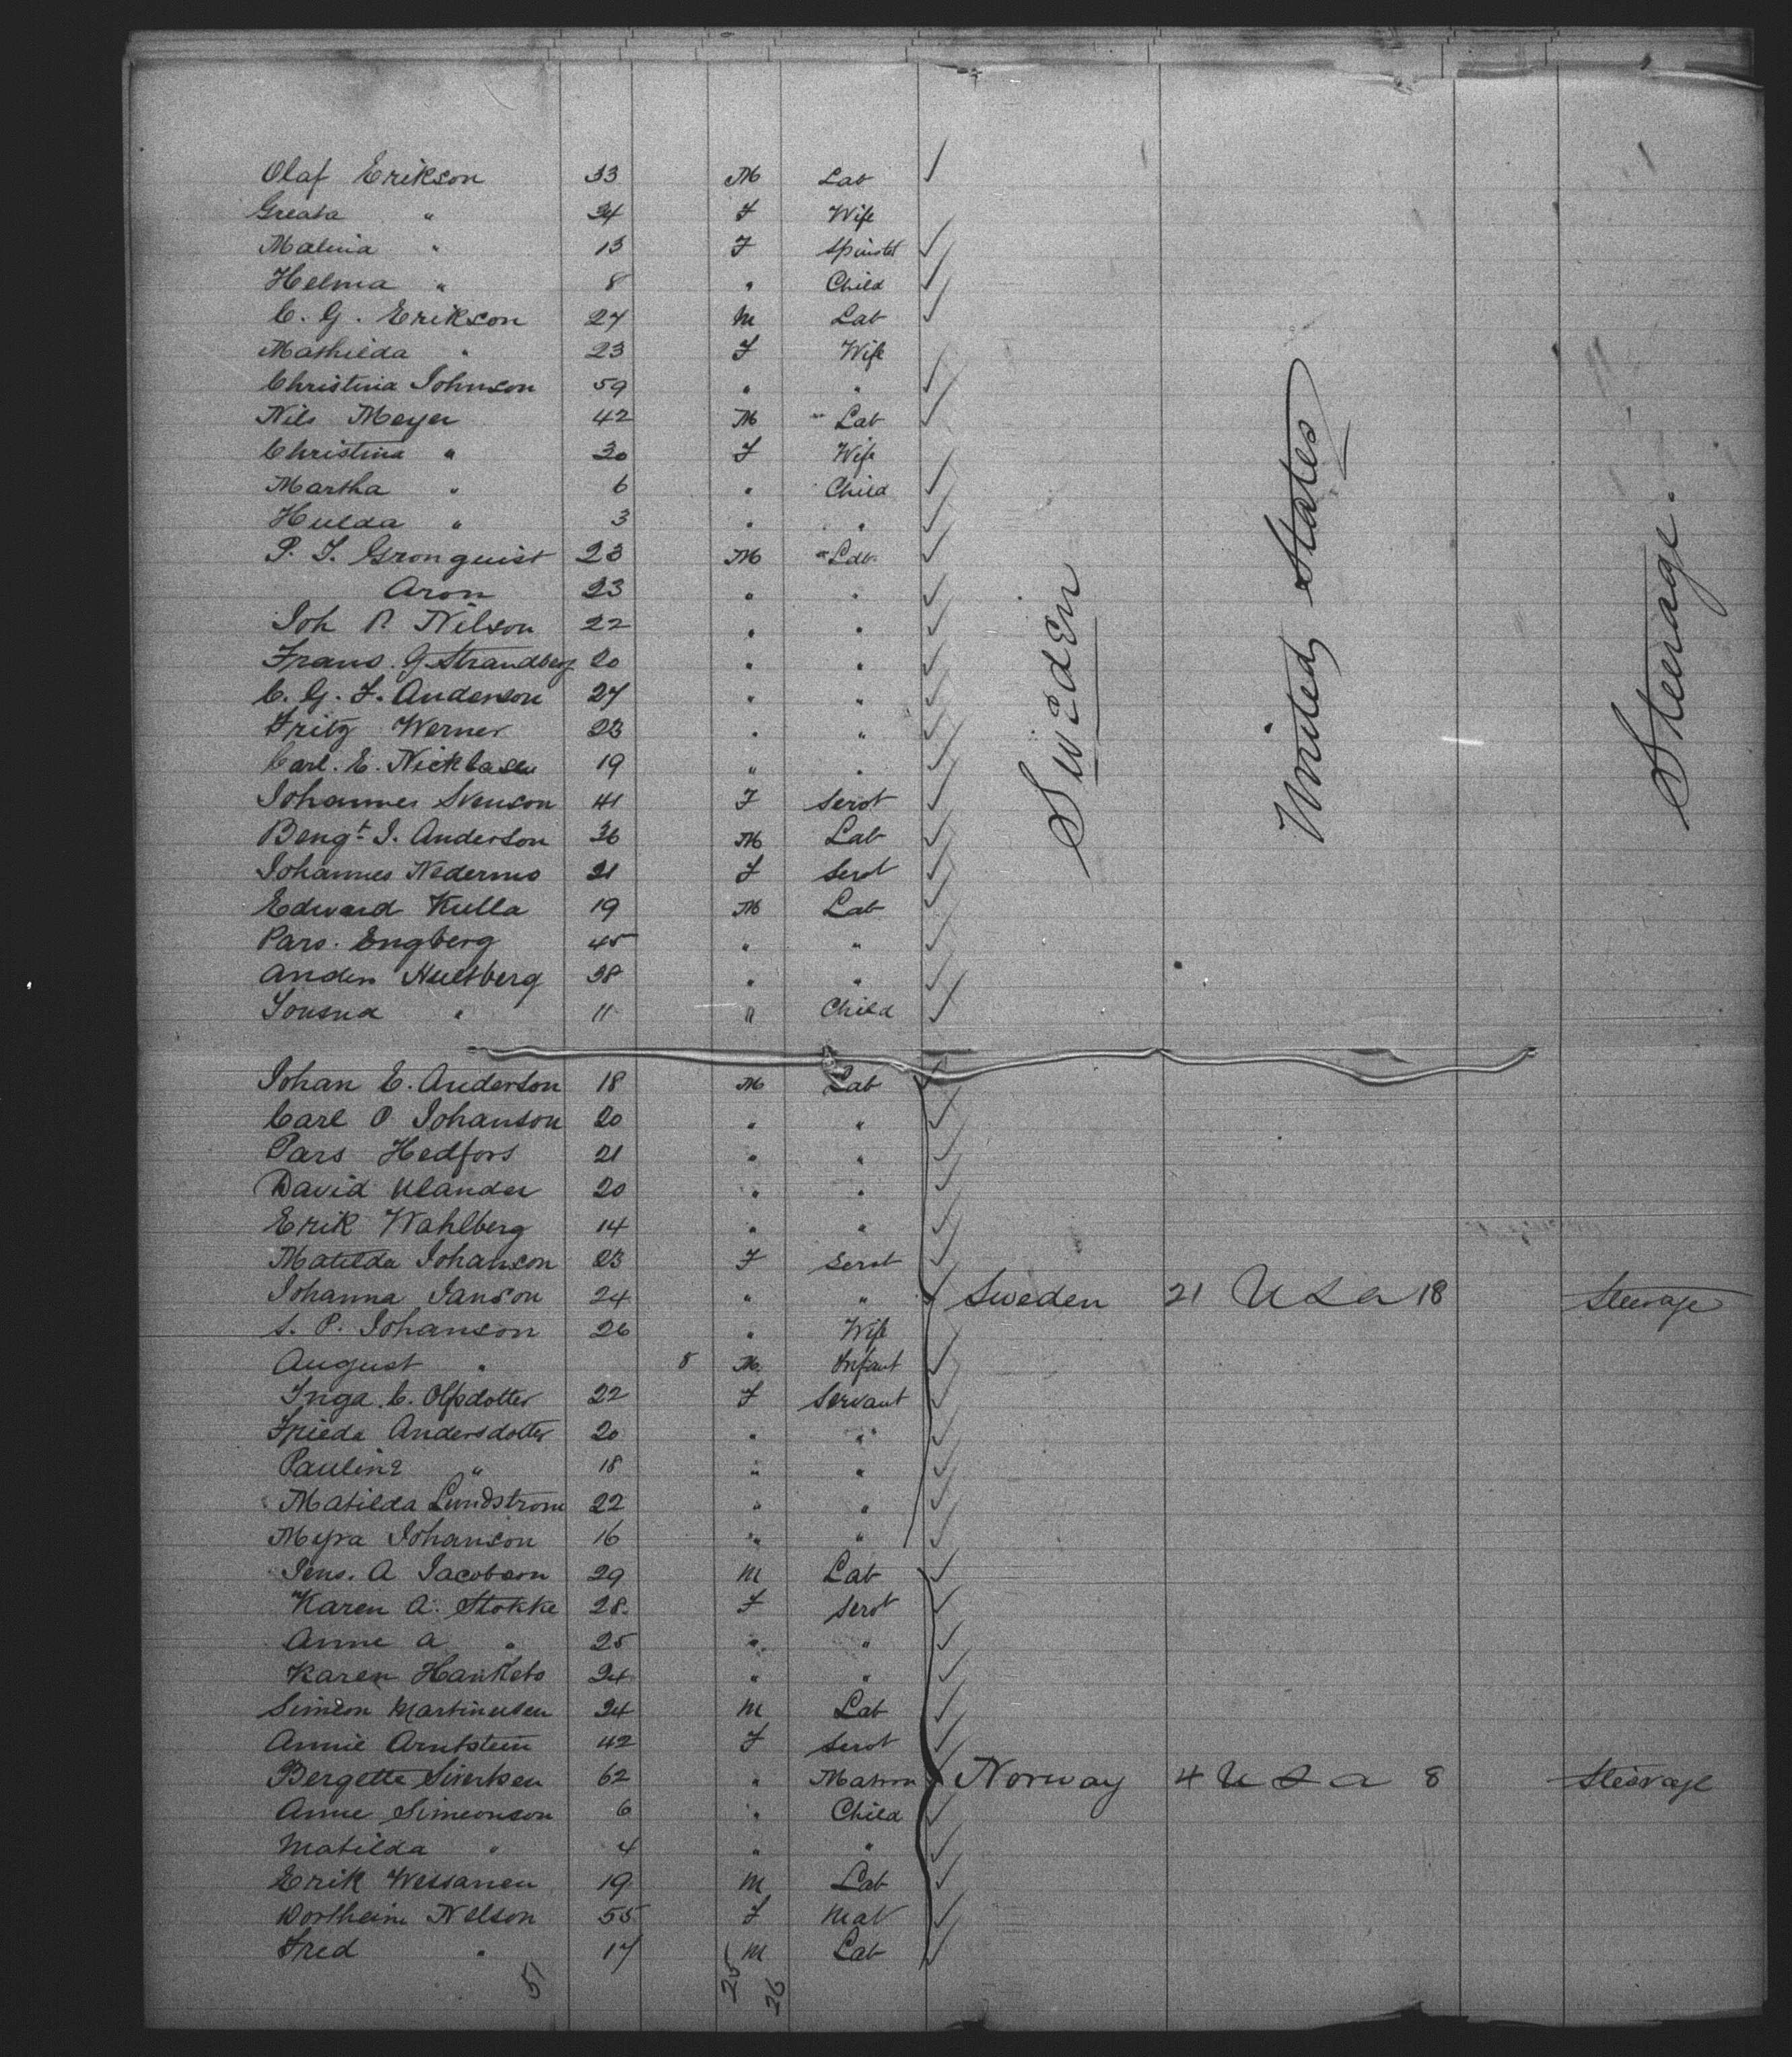 Olaf Erikson 33 M Lab
Greata " 34 F Wife
Malvia " 13 F Spinster
Helma " 8 " Child
C. G. Erikson 27 M Lab
Mathilda " 23 F Wife
Christina Johnson 59 " "
Nils Meyer 42 M " Lab
Christina " 30 F Wife
Martha " 6 " Child
Hulda " 3 " "
P. J. Gronquist 23 M " Lab
Aron 23 " "
Joh P. Nilson 22 " "
Frans. G. Strandberg 20 " "
C. G. F. Anderson 27 " "
Fritz Werner 23 " "
Carl. E. Nicklasen 19 " "
Johannes Svenson 41 F Servt
Bengt J. Anderson 36 M Lab
Johannes Nedermo 21 F Servt
Edward Kulla 19 M Lab
Pars. Engberg 45 " "
Anders Hultberg 38 " "
" 11 " Child
Sweden
United States
Steerage.
Johan E. Anderson 18 M Lab
Carl O Johanson 20 " "
Pars Hedfors 21 " "
David Ulander 20 " "
Erik Wahlberg 14 " "
Matilda Johanson 23 F Servt
Johanna Janson 24 " " Sweden 21 U S a 18 Steerage
S. P. Johanson 26 " Wife
August " 8 M. Infant
Inga C. Olfsdotter 22 F Servant
Frieda Andersdotter 20 " "
Pauline " 18 " "
Matilda Lundstrom 22 " "
Myra Johanson 16 " "
Jens. A Jacobson 29 M Lab
Karen A. Stokke 28 F Servt
Anne A " 25 " "
Karen 24 " "
Simeon Martinusen 24 M Lab
Annie Arntstein 42 F Servt
Bergette Sivertsen 62 " Matron Norway 4 U S a 8 Steerage
Anne Simeonson 6 " Child
Matilda " 4 " "
Erik Wessanen 19 M Lab
Dorthein Nelson 55 F Mat
Fred " 17 M Lab
51 25 26